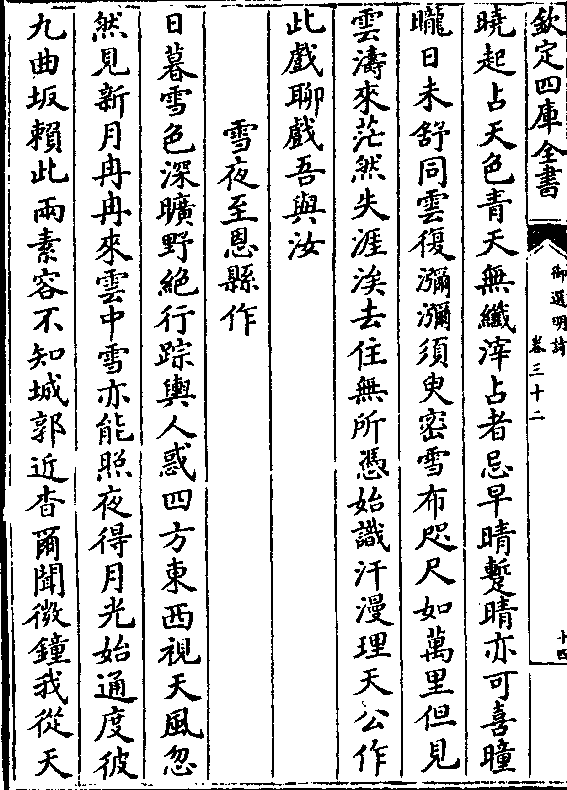 欽定四庫全書
御選明詩
卷三十二
十四
曉起占天色青天無纖滓占者忌早晴蹔晴亦可喜曈
曨日未舒同雲復瀰瀰須臾密雪布咫尺如萬里但見
雲濤來茫然失涯涘去住無所憑始識汗漫理天公作
此戲聊戲吾與汝
雪夜至恩縣作
日暮雪色深曠野絶行踪輿人惑四方東西視天風忽
然見新月冉冉來雲中雪亦能照夜得月光始通度彼
九曲坂賴此兩素容不知城郭近杳爾聞微鐘我從天